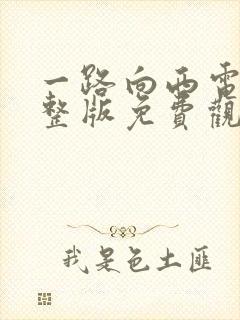 一路向西電
整版免費觀
我是色土匪